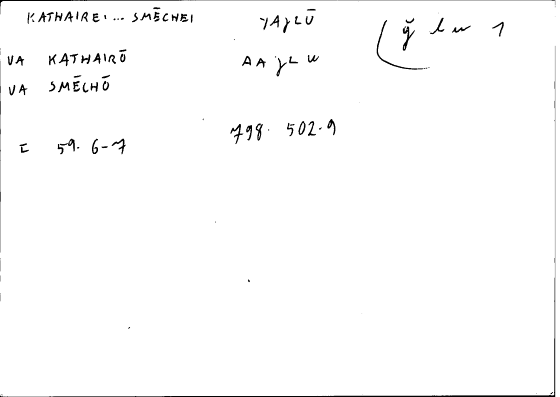 KATHAIREI ... SMĒCHEI YAǧLŪ (ǧ l w 1
VA KATHAIRŌ AAǧLW
VA SMĒCHŌ
E 59. 6-7 798. 502.9